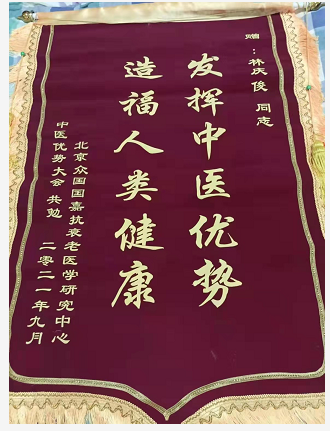 赠：林庆俊同志
发挥中医优势
造福人类健康
北京众国国嘉抗衰老医学研究中心
中医优势大会 共勉
二零二一年九月